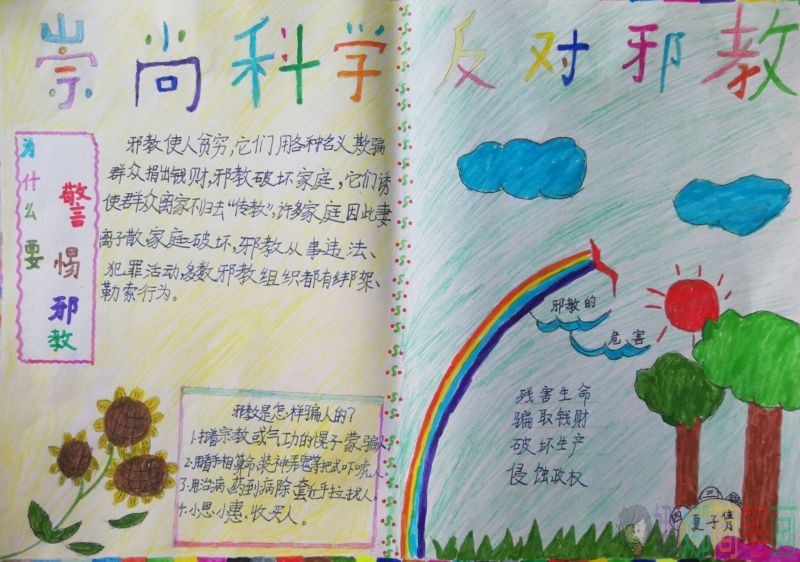 崇尚科学
反对邪教
为什么要
警惕邪教
邪教使人贫穷，它们用各种名义欺骗
群众捐出钱财，邪教破坏家庭，它们诱
使群众离家不归去“传教”，许多家庭因此妻
离子散家庭破坏，邪教从事违法、
犯罪活动，多数邪教组织都有绑架、
勒索行为。
邪教是怎样骗人的？
1.打着宗教或气功的幌子蒙骗人。
2.用看手相算命装神弄鬼等把式吓唬人。
3.用治病，药到病除套近乎拉拢人。
4.小恩小惠、收买人。
邪教的
危害
残害生命
骗取钱财
破坏生产
侵蚀政权
四 三
夏子倩